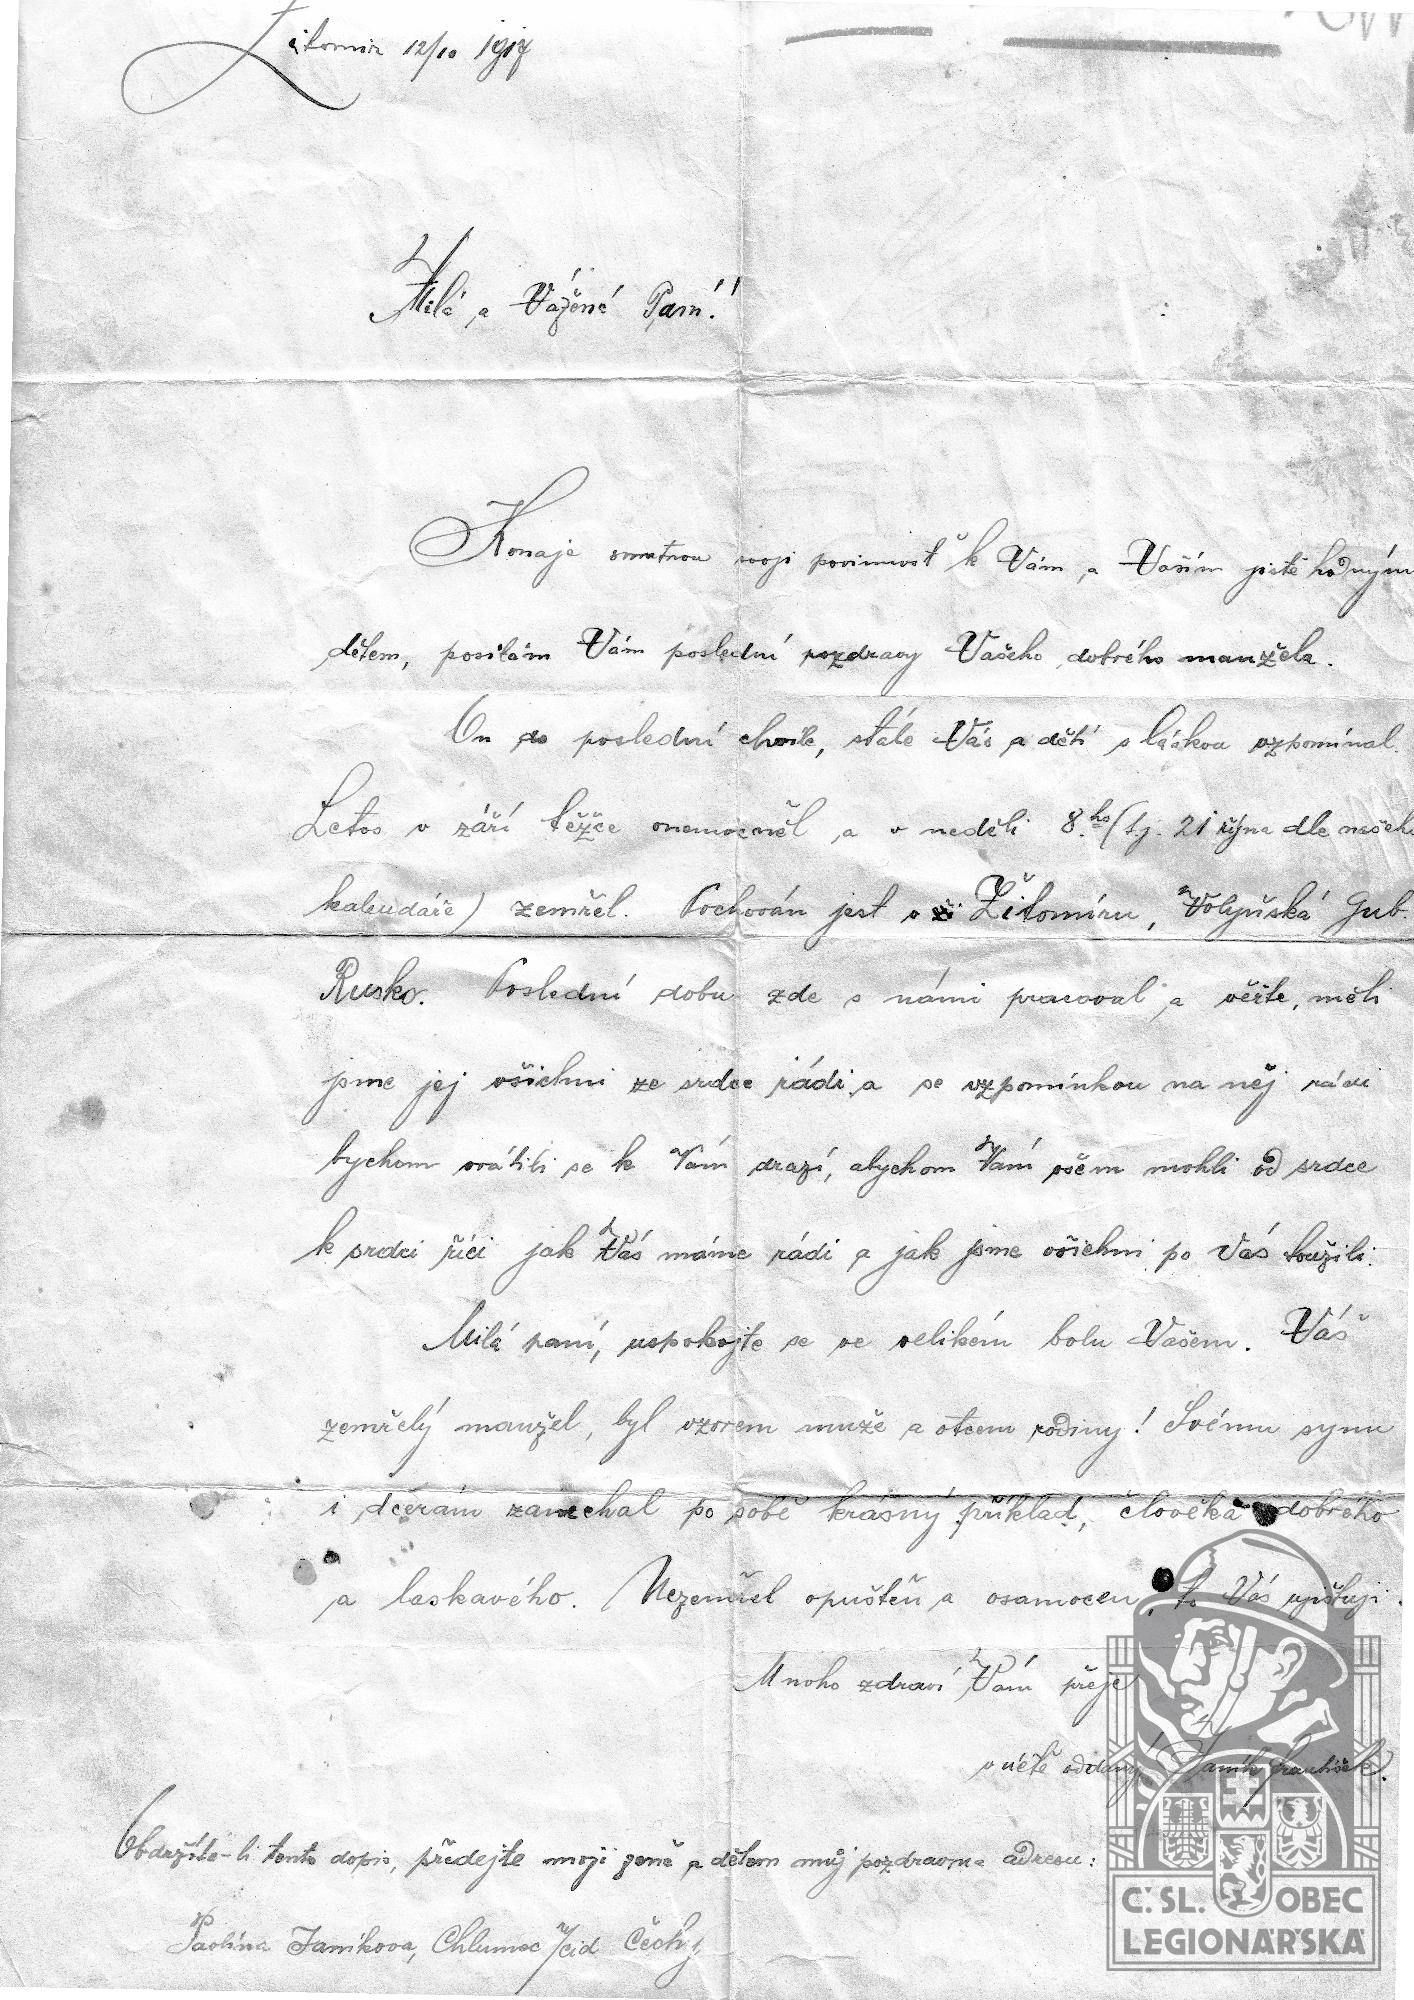 Žitomir 12/10 1917
Milá a Vážená Paní!
Konaje smutnou svoji povinnost k Vám a Vaším jistě hodným
dětem, posílám Vám poslední pozdravy Vašeho dobrého manžela.
On do poslední chvíle, stále Vás a dětí s láskou vzpomínal.
Letos v září těžce onemocněl a v neděli 8.ho (tj. 21 října dle našeho
kalendáře) zemřel. Pochován jest v Žitomíru, Volyňská Gub.
Rusko. Poslední dobu zde s námi pracoval a věřte, měli
jsme jej všichni ze srdce rádi a se vzpomínkou na něj rádi
bychom vrátili se k Vám drazí, abychom Vám všem mohli od srdce
k srdci říci jak Vás máme rádi a jak jsme všichni po Vás toužili.
Milá paní, uspokojte se ve velikém bolu Vašem. Váš
zemřelý manžel, byl vzorem muže a otcem rodiny! Svému synu
i dcerám zanechal po sobě krásný příklad, člověka dobrého
a laskavého. Nezemřel opuštěn a osamocen, to Vás ujišťuji.
Mnoho zdraví Vám přeje
v úctě oddaný Janík František.
Obdržíte-li tento dopis, předejte mojí ženě a dětem můj pozdrav na adresu:
Pavlína Janíkova, Chlumec n/Cid Čechy
Č.SL. OBEC
LEGIONÁŘSKÁ